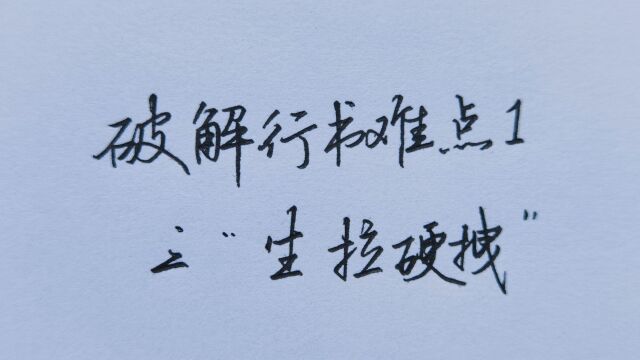 破解行书难点1
之“生拉硬拽”